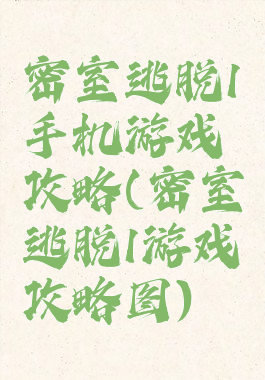 密室逃脱1
手机游戏
攻略(密室
逃脱1游戏
攻略图)